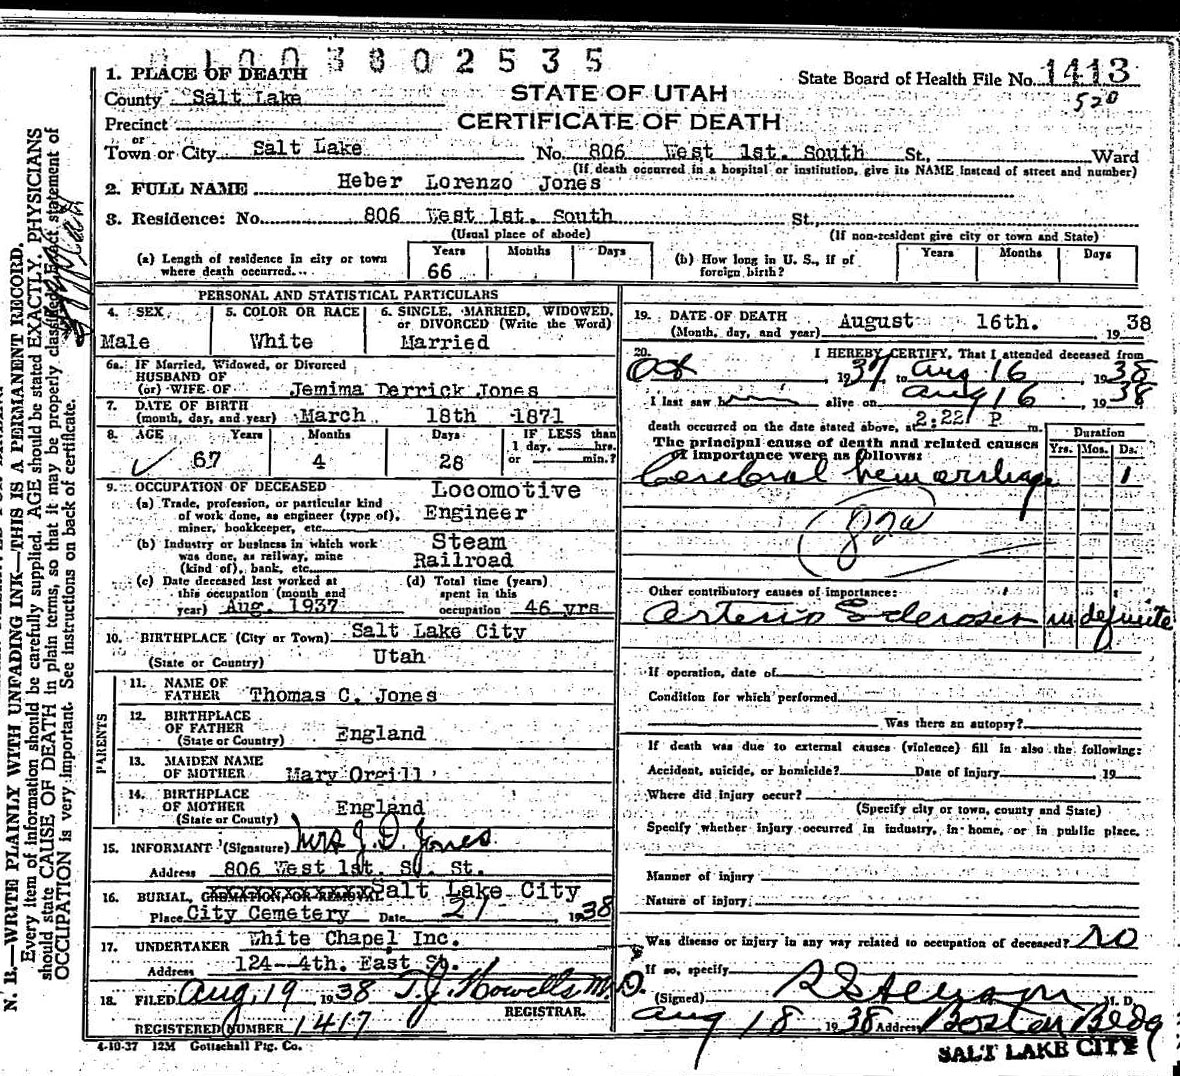 1003802535
1. PLACE OF DEATH
County Salt Lake
Precinct
or
Town or City Salt Lake
STATE OF UTAH
CERTIFICATE OF DEATH
State Board of Health File No. 1413
520
No. 806 West 1st. South St., Ward
(If death occurred in a hospital or institution, give its NAME instead of street and number)
2. FULL NAME Heber Lorenzo Jones
3. Residence: No. 806 West 1st. South St,
(Usual place of abode) (If non-resident give city or town and State)
(a) Length of residence in city or town
where death occurred...
Years Months Days
66
(b) How long in U. S., if of
foreign birth?
Years Months Days
PERSONAL AND STATISTICAL PARTICULARS
4. SEX
Male
5. COLOR OR RACE
White
6. SINGLE, MARRIED, WIDOWED,
or DIVORCED (Write the Word)
Married
6a. IF Married, Widowed, or Divorced
HUSBAND OF
(or) WIFE OF Jemima Derrick Jones
7. DATE OF BIRTH
(month, day, and year) March 18th 1871
8. AGE Years Months Days
67 4 28
IF LESS than
1 day, hrs.
or min.?
9. OCCUPATION OF DECEASED
(a) Trade, profession, or particular kind
of work done, as engineer (type of),
miner, bookkeeper, etc.
Locomotive
Engineer
(b) Industry or business in which work
was done, as railway, mine
(kind of), bank, etc.
Steam
Railroad
(c) Date deceased last worked at
this occupation (month and
year) Aug. 1937
(d) Total time (years)
spent in this
occupation 46 yrs
10. BIRTHPLACE (City or Town) Salt Lake City
(State or Country) Utah
PARENTS
11. NAME OF
FATHER Thomas C. Jones
12. BIRTHPLACE
OF FATHER
(State or Country) England
13. MAIDEN NAME
OF MOTHER Mary Orgill
14. BIRTHPLACE
OF MOTHER
(State or Country) England
15. INFORMANT (Signature) Mrs J. D. Jones
Address 806 West 1st. So. St.
16. BURIAL, CREMATION, OR REMOVAL Salt Lake City
Place City Cemetery Date 21 1938
17. UNDERTAKER White Chapel Inc.
Address 124--4th. East St.
18. FILED Aug, 19, 1938 T. J. Howells M. D.
REGISTRAR.
REGISTERED NUMBER 1417
4-10-37 12M Gottschall Ptg. Co.
19. DATE OF DEATH
(Month, day, and year) August 16th. 1938
20. I HEREBY CERTIFY, That I attended deceased from
Oct 1937 to Aug 16 1938
I last saw h alive on Aug 16 1938
death occurred on the date stated above, at 2:22 P m.
The principal cause of death and related causes
of importance were as follows:
Duration
Yrs. Mos. Ds.
Cerebral hemorrhage 1
82a
Other contributory causes of importance:
Arterio Sclerosis indefinite
If operation, date of
Condition for which performed
Was there an autopsy?
If death was due to external causes (violence) fill in also the following:
Accident, suicide, or homicide? Date of Injury 19
Where did injury occur?
(Specify city or town, county and State)
Specify whether injury occurred in industry, in home, or in public place.
Manner of injury
Nature of injury
Was disease or injury in any way related to occupation of deceased? No
If so, specify
(Signed) M. D.
Aug 18 1938 Address Boston Bldg
SALT LAKE CITY
N. B.—WRITE PLAINLY WITH UNFADING INK—THIS IS A PERMANENT RECORD.
Every item of information should be carefully supplied. AGE should be stated EXACTLY. PHYSICIANS
should state CAUSE OF DEATH in plain terms, so that it may be properly classified. Exact statement of
OCCUPATION is very important. See instructions on back of certificate.